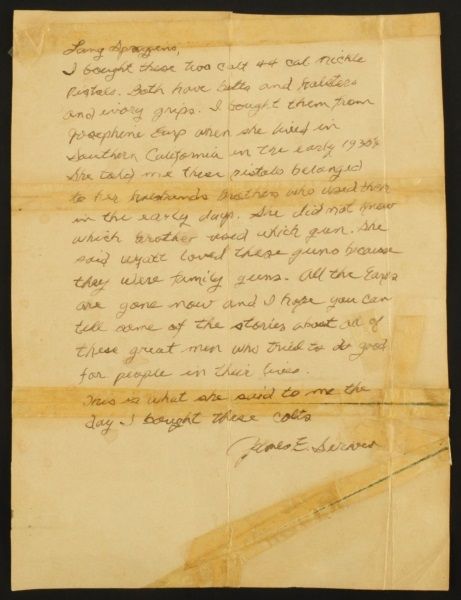 Lang Spragens,
I bought these two Colt 44 cal nickle
Pistols. Both have belts and holsters
and ivory grips. I bought them from
Josephine Earp when she lived in
Southern California in the early 1930s
She told me these pistols belonged
to her husbands Brothers who used them
in the early days. She did not know
which brother used which gun. She
said Wyatt loved these guns because
they were family guns. All the Earps
are gone now and I hope you can
tell some of the stories about all of
these great men who tried to do good
for people in their lives.
This is what she said to me the
day I bought these colts
James E.